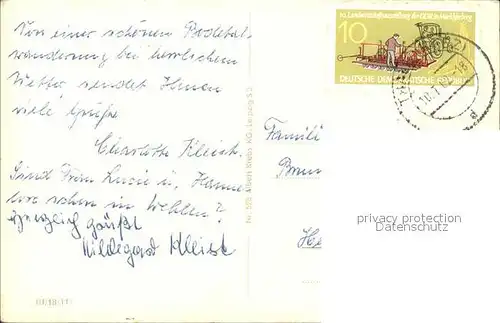 Von einer schönen Bodetal-
wanderung bei herrlichem
Wetter sendet Ihnen
viele Grüße
Charlotte Kleist.
Sind Frau Lucie u. Hanne
lore schon in Wehlen?
Herzlich grüßt
Hildegard Kleist
10. Landwirtschaftsausstellung der DDR in Markkleeberg
10
DEUTSCHE DEMOKRATISCHE REPUBLIK
Famili
Brun
He
privacy protection
Datenschutz